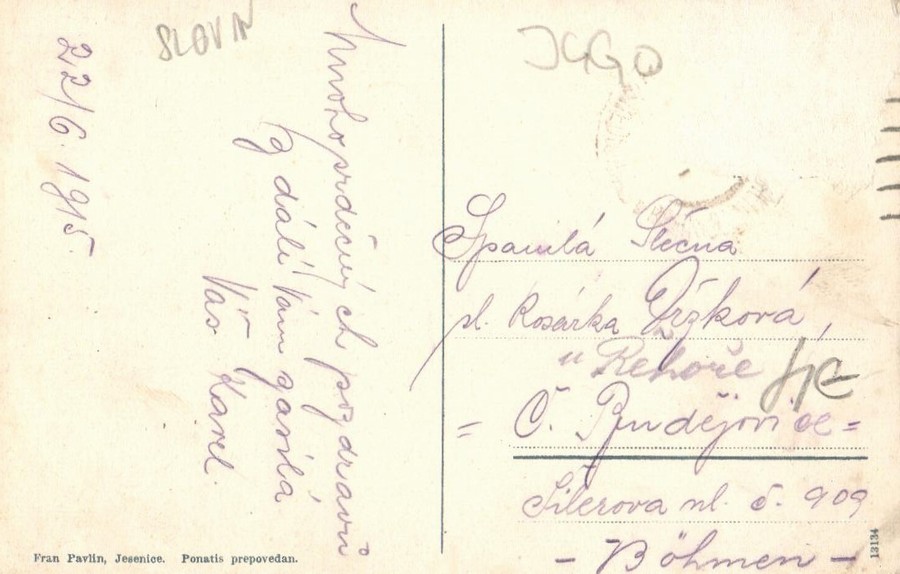 SLOVIN
22/6. 1915.
Mnoho srdečných pozdravů
z dáli Vám zasílá
Váš Karel.
JUGO
Spanilá Slečna
sl. Rosárka Držková,
u Řehoře
= Č. Budějovice =
Šilerova ul. č. 909
- Böhmen -
Fran Pavlin, Jesenice. Ponatis prepovedan.
13134